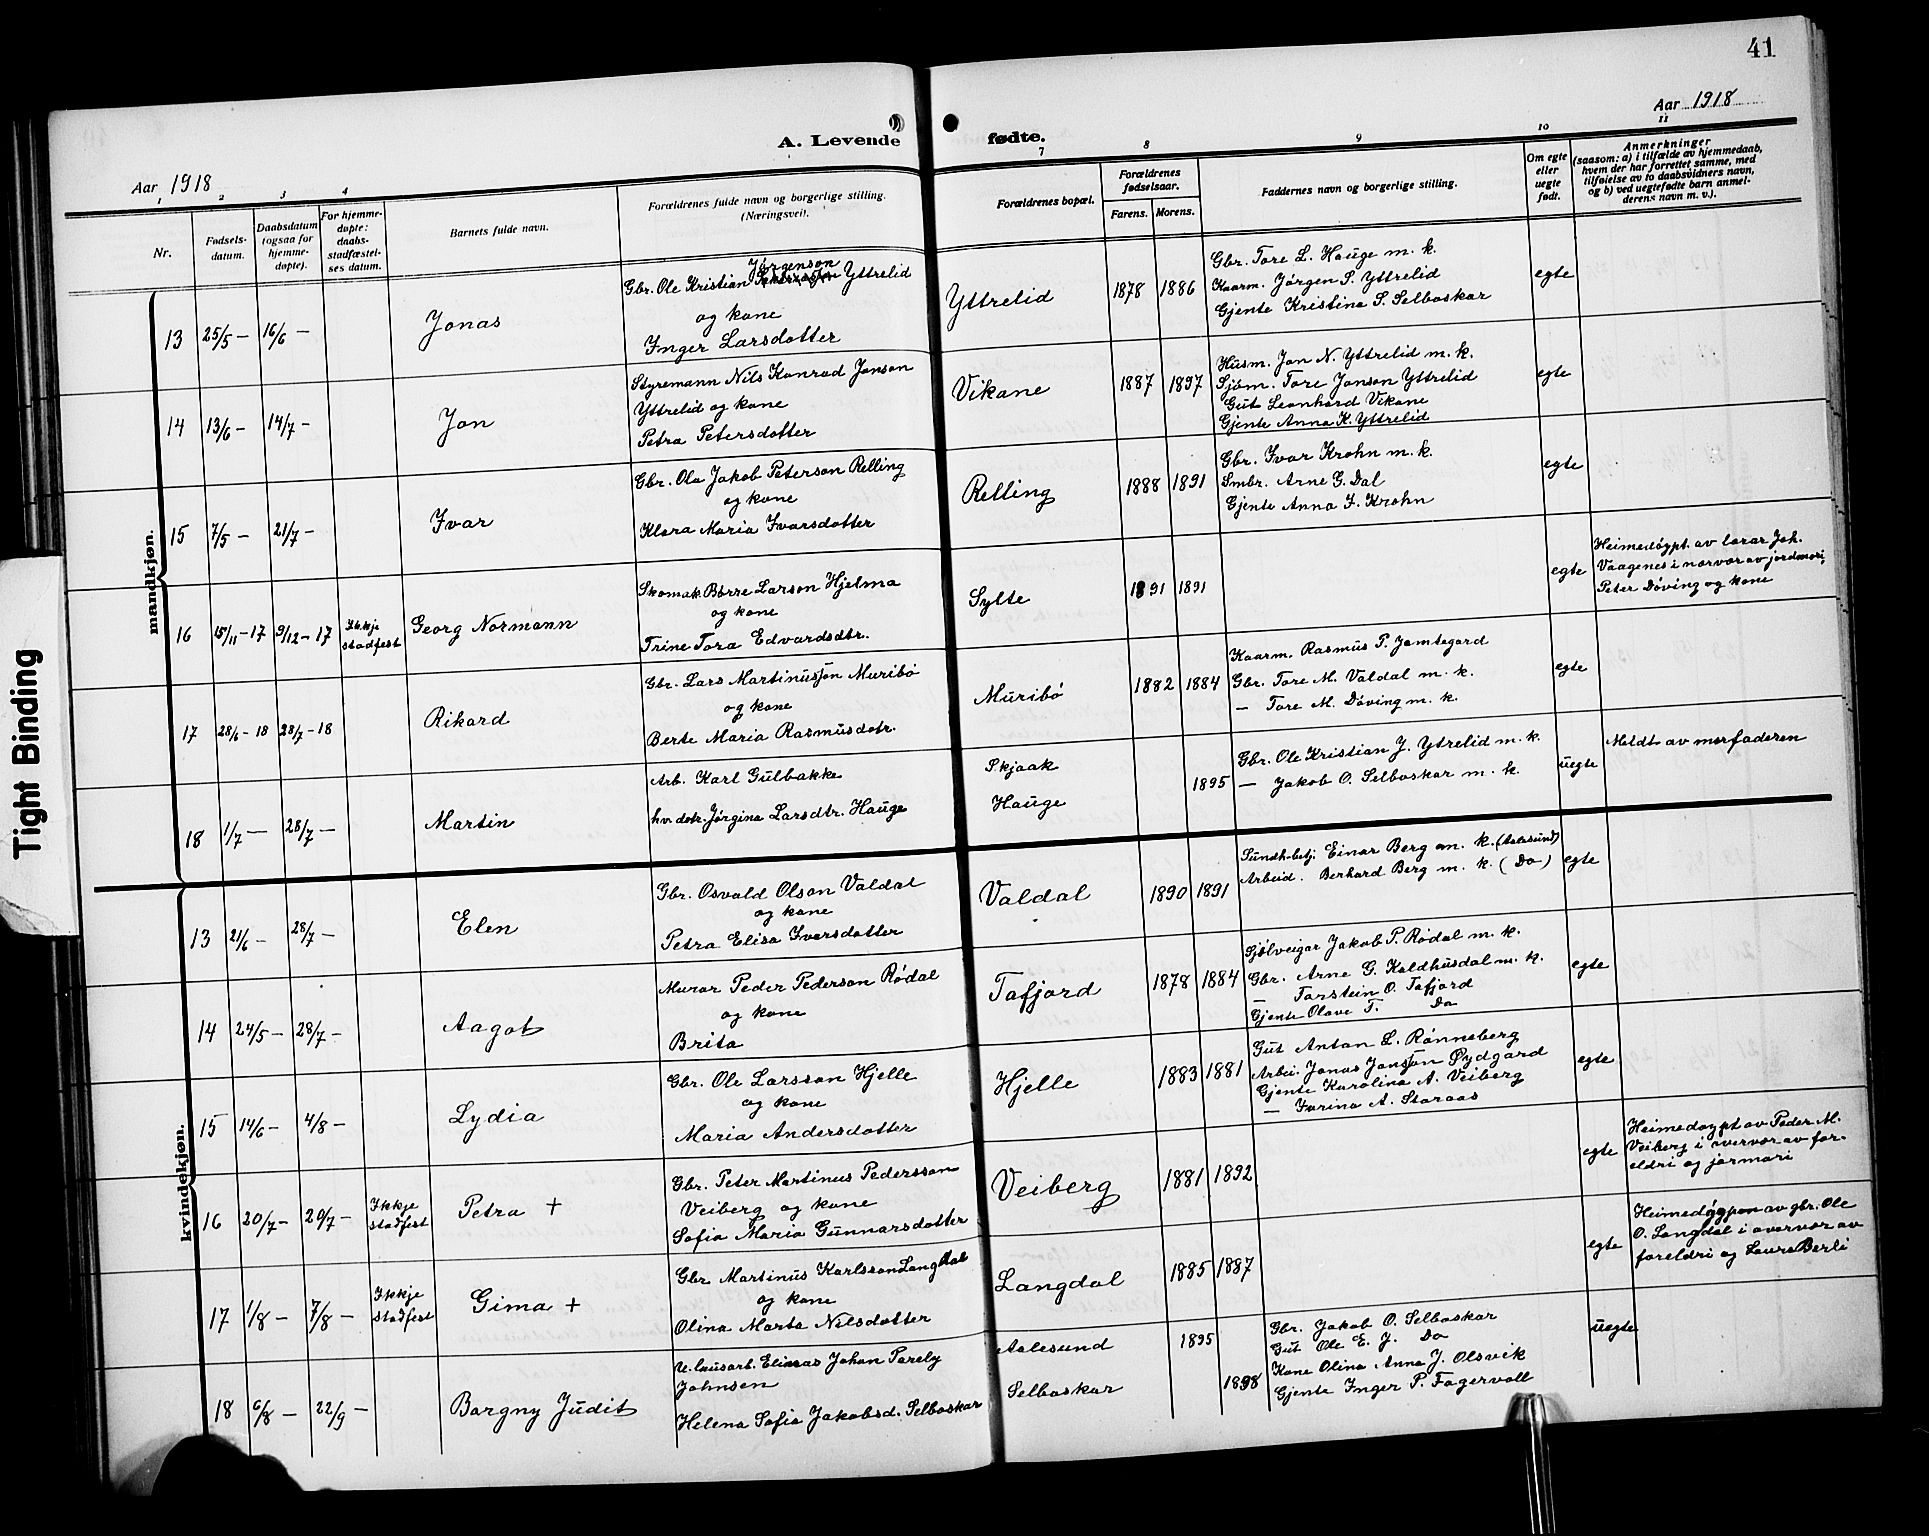 41
Aar 1918
A. Levende fødte.
Aar 1918
1 2 3 4 7 8 9 10 11
Nr.
Fødsels-
datum.
Daabsdatum
(ogsaa for
hjemme-
døpte).
For hjemme-
døpte:
daabs-
stadfæstel-
ses datum.
Barnets fulde navn.
Forældrenes fulde navn og borgerlige stilling.
(Næringsvei).
Forældrenes bopæl.
Forældrenes
fødselsaar.
Farens. Morens.
Faddernes navn og borgerlige stilling.
Om egte
eller
uegte
født.
Anmerkninger
(saasom: a) i tilfælde av hjemmedaab,
hvem der har forrettet samme, med
tilføielse av to daabsvidners navn,
og b) ved uegtefødte barn anmel-
derens navn m. v.).
mandkjøn.
13 25/5 — 16/6 — Jonas
Jørgenson
Gbr. Ole Kristian Yttrelid
og kone
Inger Larsdotter
Yttrelid 1878 1886
Gbr. Tore L. Hauge m. k.
Kaarm. Jørgen S. Yttrelid
Gjente Kristina S. Selboskar
egte
14 13/6 — 14/7 — Jon
Styremann Nils Konrad Jonson
Yttrelid og kone
Petra Petersdotter
Vikane 1887 1897
Husm. Jon N. Yttrelid m. k.
Sjøm. Tore Jonson Yttrelid
Gut Leonhard Vikane
Gjente Anna K. Yttrelid
egte
15 7/5 — 21/7 — Ivar
Gbr. Ola Jakob Peterson Relling
og kone
Klara Maria Ivarsdotter
Relling 1888 1891
Gbr. Ivar Krohn m. k.
Smbr. Arne G. Dal
Gjente Anna I. Krohn
egte
16 15/11 — 17 9/12 — 17 Ikkje
stadfest
Georg Normann
Skomak. Børre Larson Hjelma
og kone
Trine Tora Edvardsdtr.
Sylte 1891 1891
egte
Heimedøypt av lærar Joh.
Vaagenes i nærvær av jordmori,
Peter Døving og kone
17 28/6 — 18 28/7 — 18 Rikard
Gbr. Lars Martinusson Muribø
og kone
Berte Maria Rasmusdotr.
Muribø 1882 1884
Kaarm. Rasmus P. Jamtegard
Gbr. Tore M. Valdal m. k.
— Tore M. Døving m. k.
egte
18 1/7 — 28/7 — Martin
Arb. Karl Gulbakke
hv. dotr. Jørgina Larsdtr. Hauge
Skjaak
Hauge
1895
Gbr. Ole Kristian J. Ytrelid m. k.
— Jakob O. Selboskar m. k.
uegte
Meldt av morfaderen
kvindekjøn.
13 21/6 — 28/7 — Elen
Gbr. Osvald Olson Valdal
og kone
Petra Elisa Ivarsdotter
Valdal 1890 1891
Sundh.betj. Einar Berg m. k. (Aalesund)
Arbeid. Berhard Berg m. k. (Do)
egte
14 24/5 — 28/7 — Aagot
Murar Peder Pederson Rødal
og kone
Brita
Tafjord 1878 1884
Sjølveigar Jakob P. Rødal m. k.
Gbr. Arne G. Kaldhusdal m. k.
— Torstein O. Tafjord
Gjente Olave T. Do
egte
15 14/6 — 4/8 — Lydia
Gbr. Ole Larsson Hjelle
og kone
Maria Andersdotter
Hjelle 1883 1881
Gut Anton L. Rønneberg
Arbei. Jonas Jonsson Øydgard
Gjente Karolina A. Veiberg
— A. Storaas
egte
16 20/7 — 20/7 — Ikkje
stadfest
Petra +
Gbr. Peter Martinus Pedersson
Veiberg og kone
Sofia Maria Gunnarsdotter
Veiberg 1881 1892
egte
Heimedøypt av Peder M.
Veiberg i overvær av for-
eldri og jormori
17 1/8 — 7/8 — Ikkje
stadfest
Gima +
Gbr Martinus Karlsson Langdal
og kone
Olina Marta Nilsdotter
Langdal 1885 1887
egte
Heimedøypen av gbr. Ole
O. Langdal i overvær av
foreldri og Laura Berli
18 6/8 — 22/9 — Borgny Judit
Elias Johan Parely
Johnsen
Helena Sofia Jakobsd. Selboskar
Aalesund 1895
Selboskar 1898
Gbr. Jakob O. Selboskar
Gut Ole E. J. Do
Kone Olina Anna J. Olsvik
Gjente Inger P. Fagervoll
uegte
Tight Binding